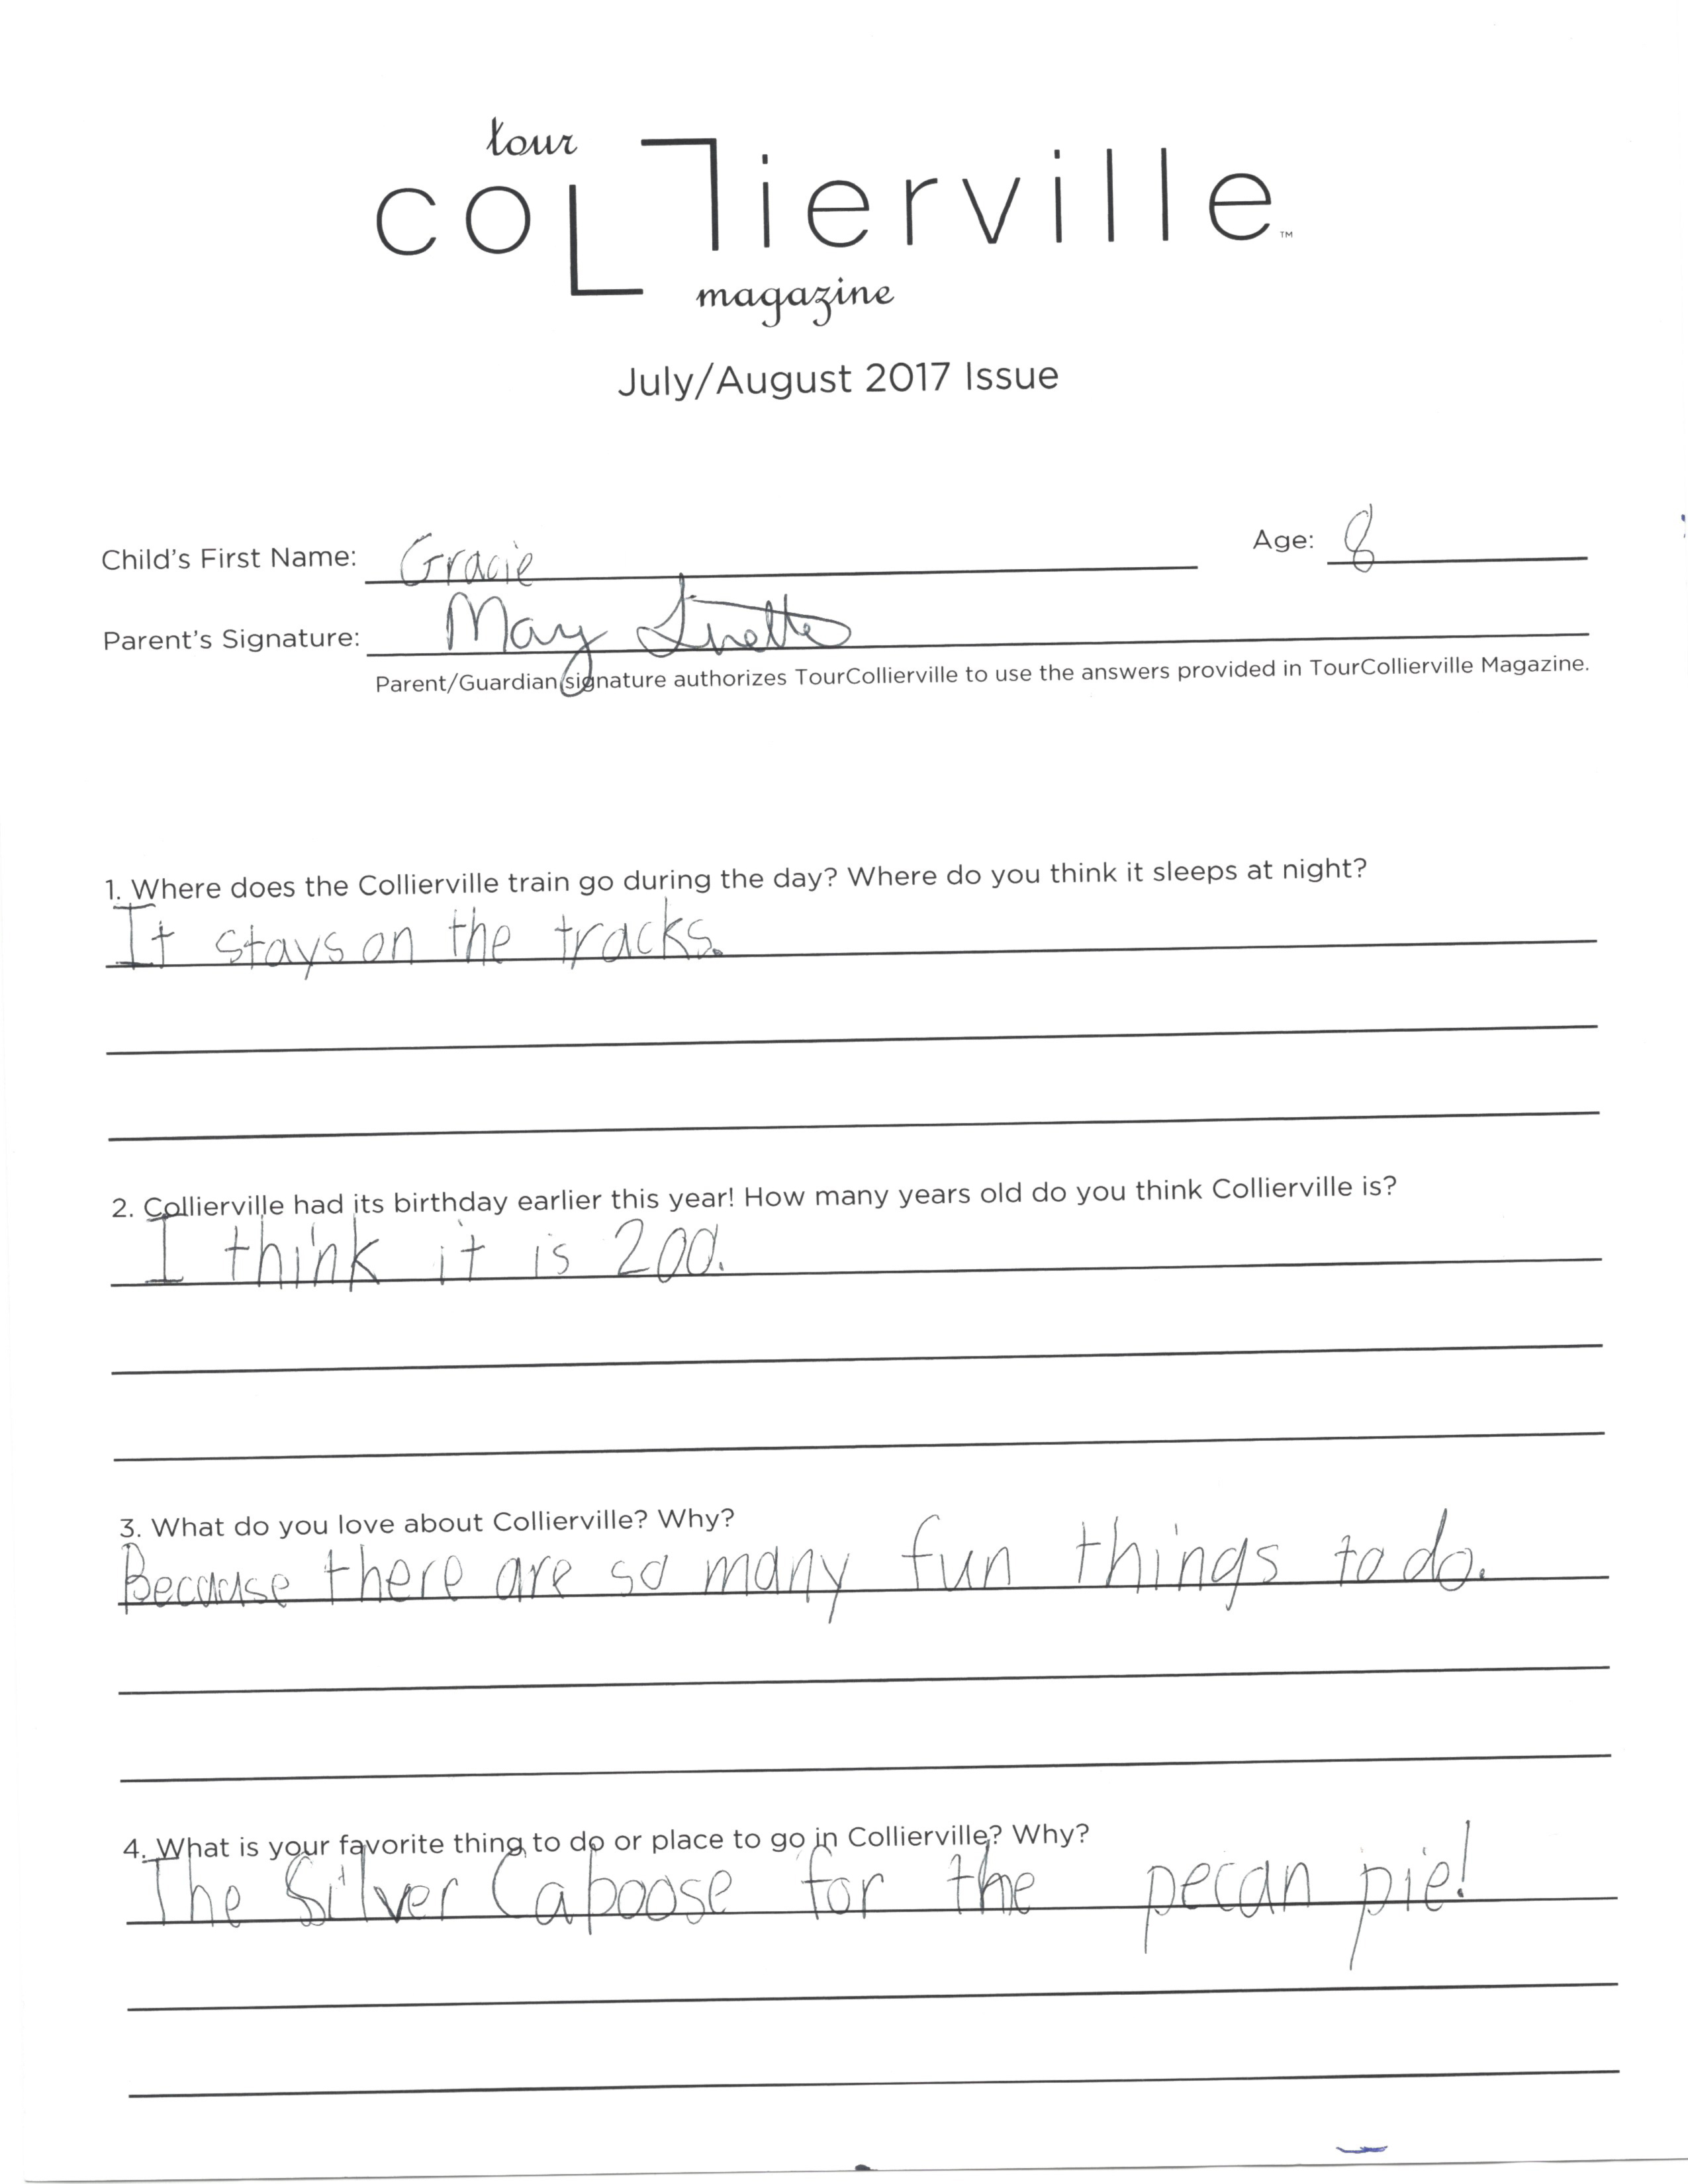 tour
coLLierville™
magazine
July/August 2017 Issue
Child's First Name: Gracie Age: 8
Parent's Signature: May
Parent/Guardian signature authorizes TourCollierville to use the answers provided in TourCollierville Magazine.
1. Where does the Collierville train go during the day? Where do you think it sleeps at night?
It stays on the tracks.
2. Collierville had its birthday earlier this year! How many years old do you think Collierville is?
I think it is 200.
3. What do you love about Collierville? Why?
Because there are so many fun things to do.
4. What is your favorite thing to do or place to go in Collierville? Why?
The Silver Caboose for the pecan pie!